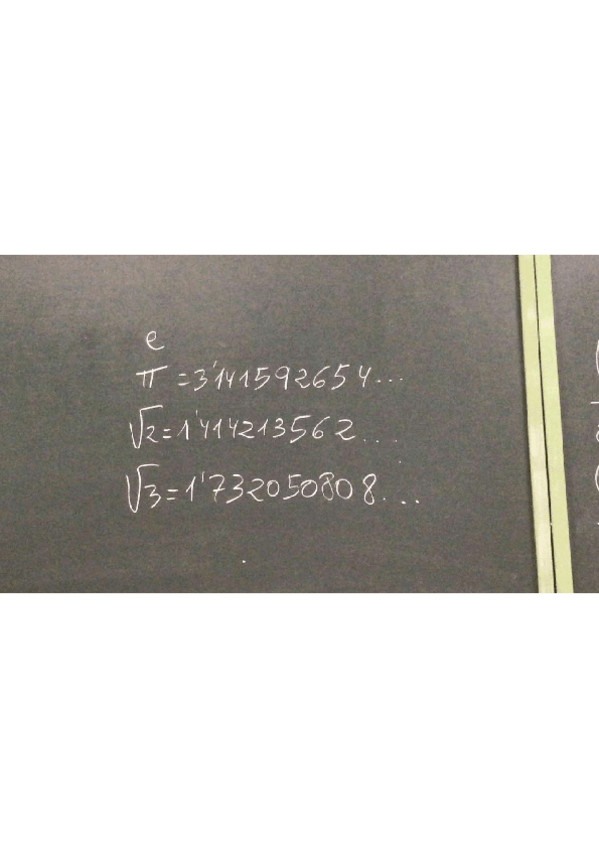 e
π = 3'141592654...
√2 = 1'414213562...
√3 = 1'732050808...